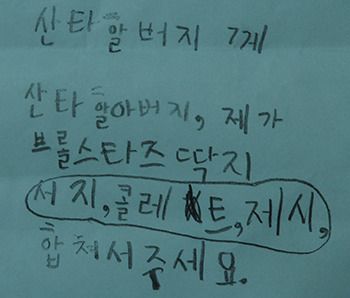 산타할버지 께
산타할아버지, 제가
브롤스타즈 딱지
서지, 콜레트, 제시,
합쳐서주세요.